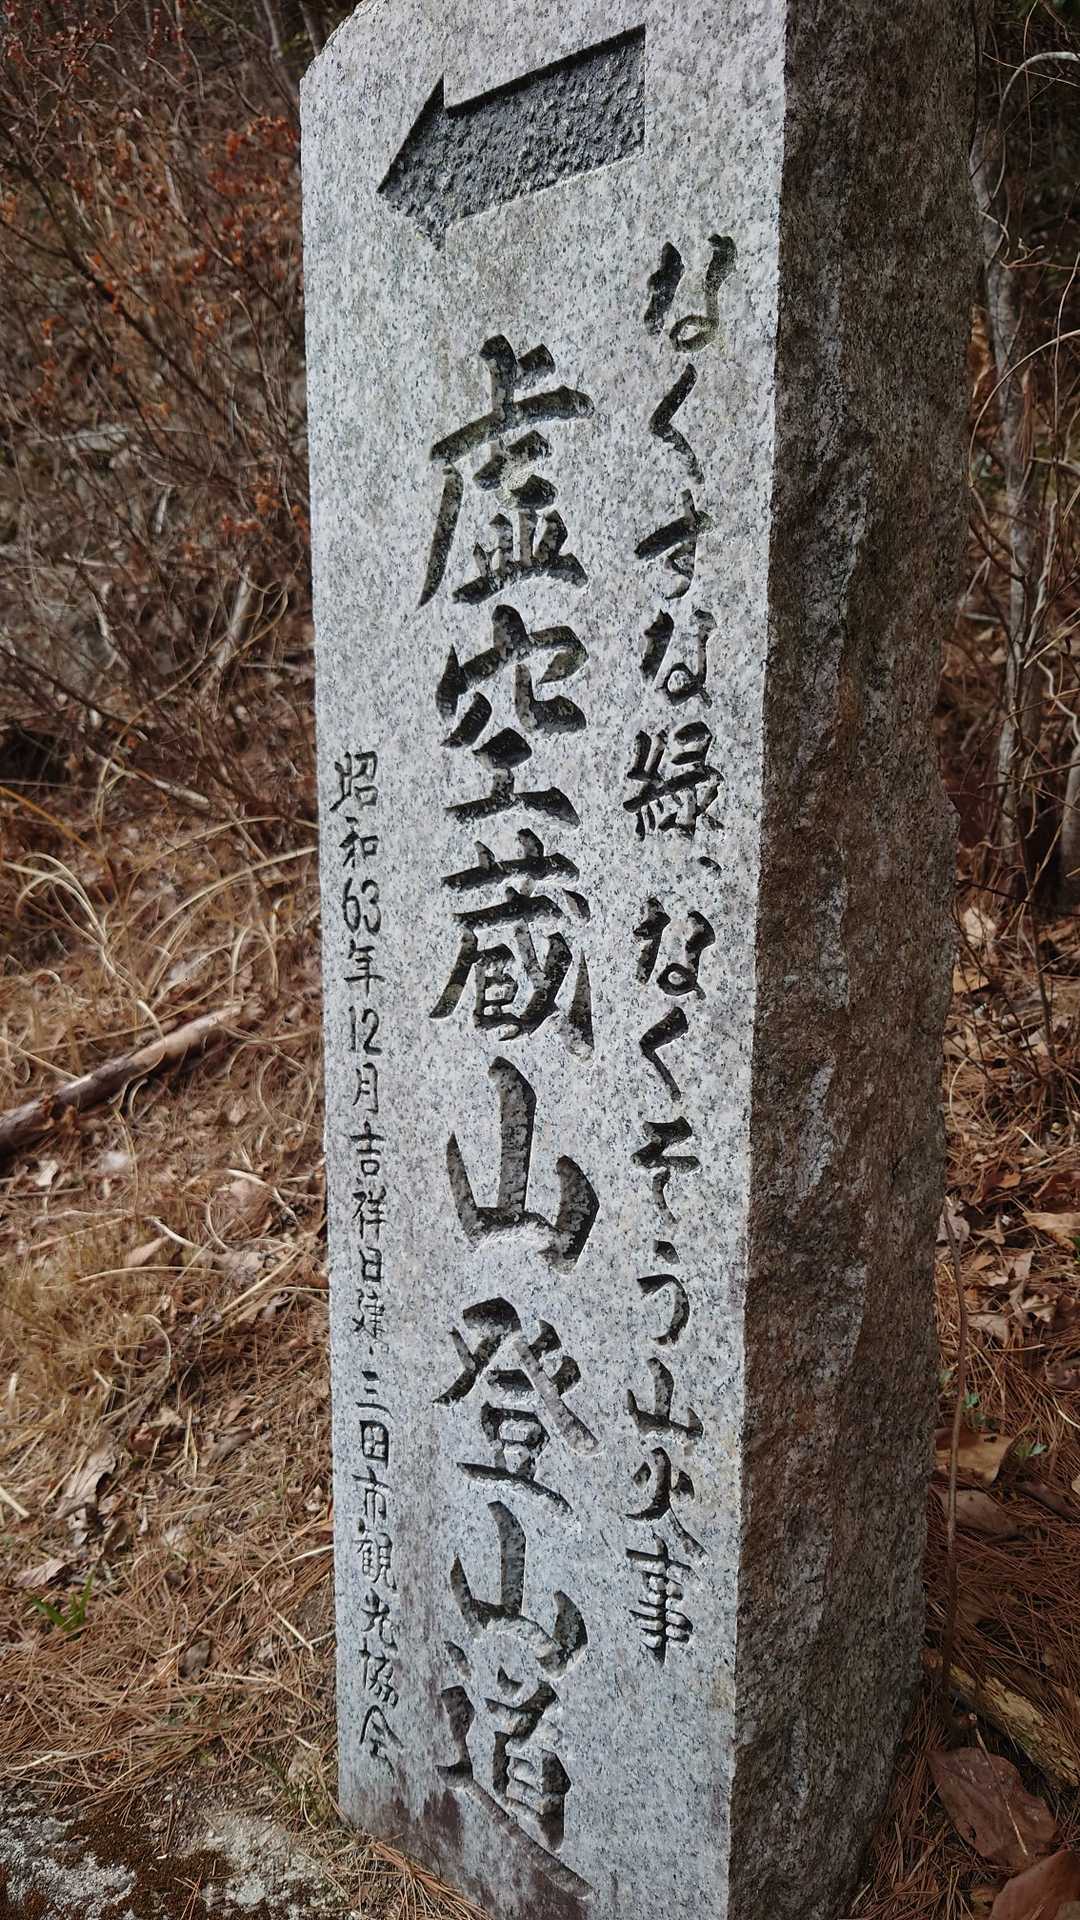 なくすな緑、なくそう山火事
虚空蔵山登山道
昭和63年12月吉祥日建.三田市観光協会